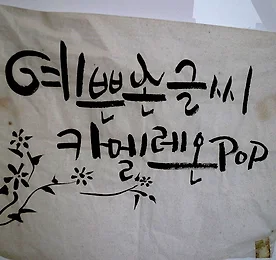 예쁜손글씨
카멜레온pop